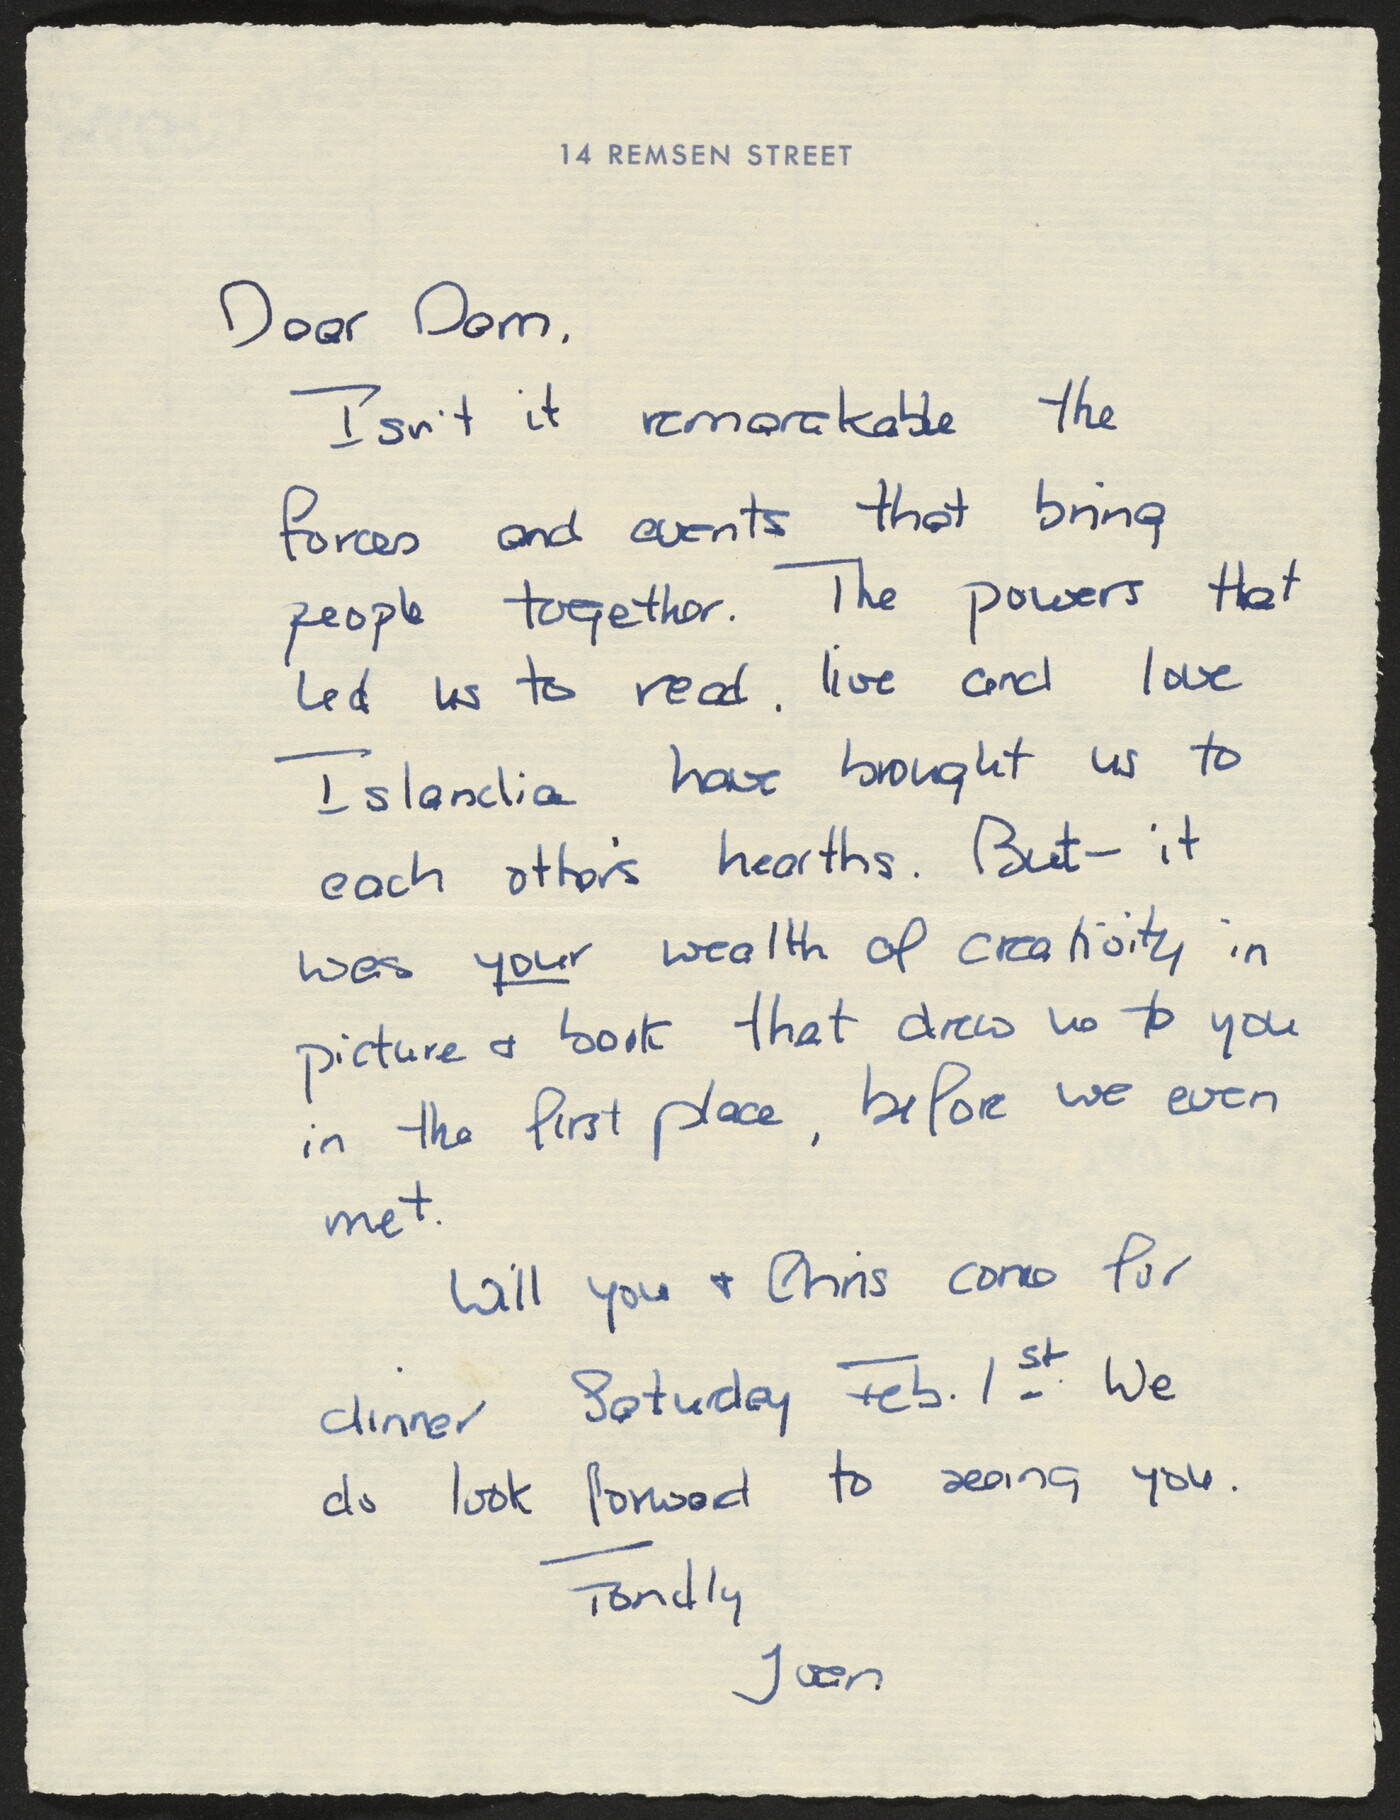 14 REMSEN STREET
Dear Dom,
Isn't it remarkable the
forces and events that bring
people together. The powers that
led us to read, live and love
Islandia have brought us to
each other's hearths. But - it
was your wealth of creativity in
picture & book that drew us to you
in the first place, before we even
met.
Will you & Chris come for
dinner Saturday Feb. 1st. We
do look forward to seeing you.
Fondly
Joan